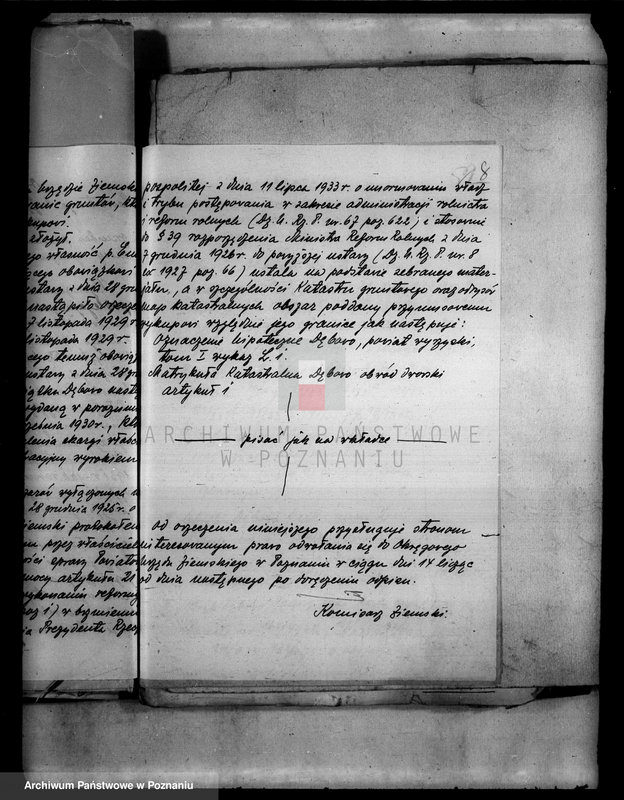 urzędzie Ziemsk
wanie gruntów, kt
kupowi.
ałożył.
go własność p. Em
ącego obowiązkowi
ustawy z dnia 28 gru
nastąpiło orzeczen
7 listopada 1929 r.
listopada 1929 r.
cego temuż obowiąz
ustawy z dnia 28 gru
iątku Dęboro nastą
ydaną w porozum
cznia 1930 r., kt
lenia skargi właści
bacyjny wyrokiem
szarów wyłączonych w
28 grudnia 1925 r. o
iemski protokołem
m przez właściciela
ości sprawy Powiato
mocy artykułu 21
ykonaniu reformy
poz 1) w brzmieniu
ia Prezydenta Rzecz
8
pospolitej z dnia 11 lipca 1933 r. o unormowaniu władz
i trybu postępowania w zakresie administracji rolnictwa
i reform rolnych (Dz. U. Rz. P. nr. 67 poz 622) i stosownie
do § 39 rozporządzenia Ministra Reform Rolnych z dnia
7 grudnia 1926 r. do powyższej ustawy (Dz. U. Rz. P. nr. 8
ex 1927 poz. 66) ustala na podstawie zebranego mater-
jału, a w szczególności Katastru gruntowego oraz odrysów
map katastralnych obszar poddany przymusowemu
wykupowi względnie jego granice jak następuje:
Oznaczenie hipoteczne Dęboro, powiat wyrzyski,
tom I wykaz L. 1.
Matrykuła Katastralna Dęboro obwód dworski
artykuł 1
pisać jak na wkładce
od orzeczenia niniejszego przysługuje stronom
interesowanym prawo odwołania się do Okręgowego
Urzędu Ziemskiego w Poznaniu w ciągu dni 14 licząc
od dnia następnego po doręczeniu odpisu.
Komisarz Ziemski.
ARCHIWUM PAŃSTWOWE
W POZNANIU
Archiwum Państwowe w Poznaniu